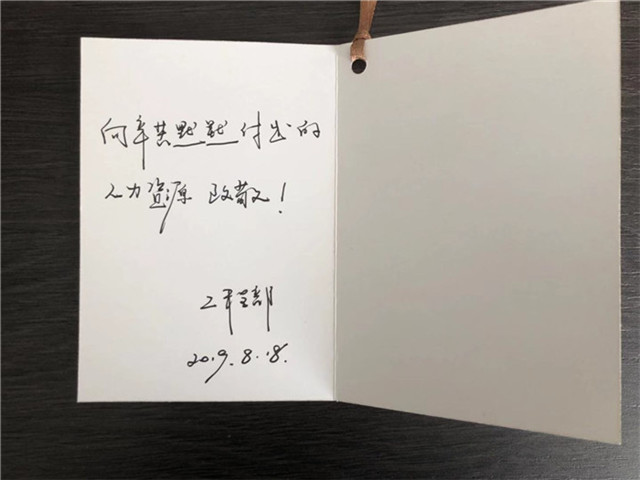 向辛苦默默付出的
人力资源 致敬！
工程部
2019.8.18.